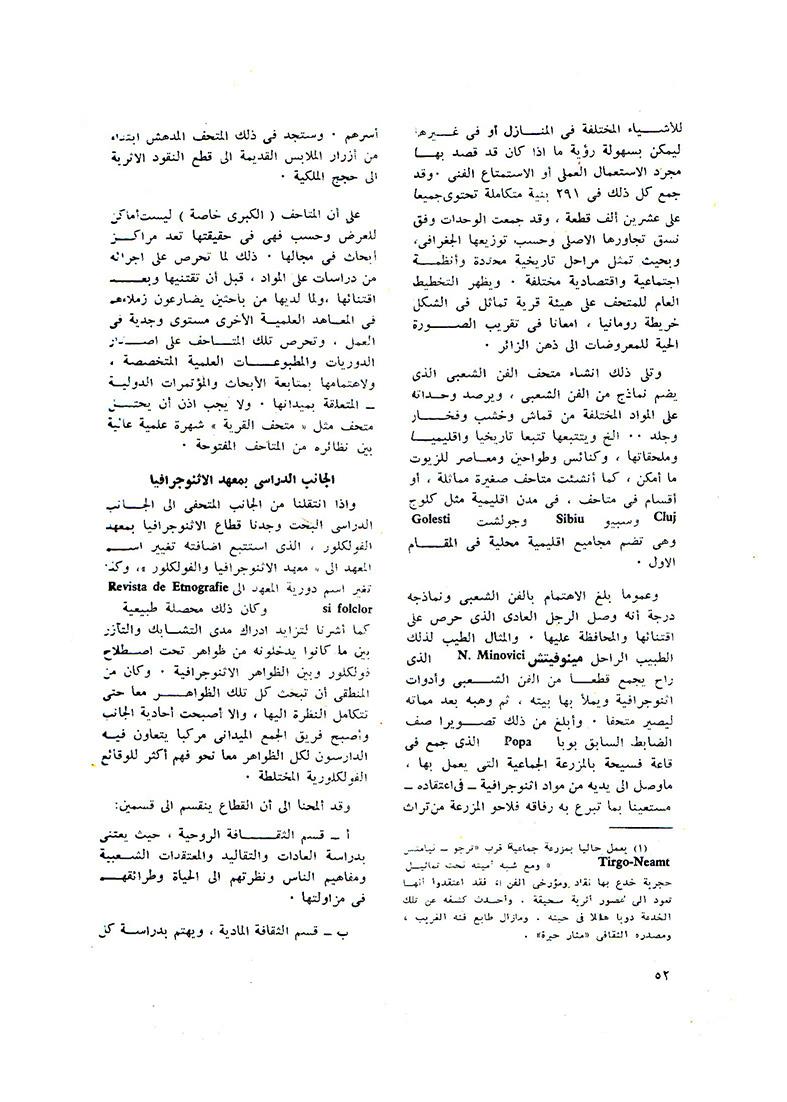 للأشياء المختلفة فى المنازل أو فى غيرها
ليمكن بسهولة رؤية ما اذا كان قد قصد بها
مجرد الاستعمال العملى أو الاستمتاع الفنى ٠ وقد
جمع كل ذلك فى ٢٩١ بنية متكاملة تحتوى جميعا
على عشرين ألف قطعة ، وقد جمعت الوحدات وفق
نسق تجاورها الاصلى وحسب توزيعها الجغرافى،
وبحيث تمثل مراحل تاريخية محددة وأنظمة
اجتماعية واقتصادية مختلفة ٠ ويظهر التخطيط
العام للمتحف على هيئة قرية تماثل فى الشكل
خريطة رومانيا ، امعانا فى تقريب الصورة
الحية للمعروضات الى ذهن الزائر ٠
وتلى ذلك انشاء متحف الفن الشعبى الذى
يضم نماذج من الفن الشعبى ، ويرصد وحداته
على المواد المختلفة من قماش وخشب وفخار
وجلد ٠٠ الخ ويتتبعها تتبعا تاريخيا واقليميا
وملحقاتها ، وكنائس وطواحين ومعاصر للزيوت
ما أمكن ، كما أنشئت متاحف صغيرة مماثلة ، أو
أقسام فى متاحف ، فى مدن اقليمية مثل كلوج
Cluj وسيبيو Sibiu وجولشت Golesti
وهى تضم مجاميع اقليمية محلية فى المقام
الاول ٠
وعموما بلغ الاهتمام بالفن الشعبى ونماذجه
درجة أنه وصل الرجل العادى الذى حرص على
اقتنائها والمحافظة عليها ٠ والمثال الطيب لذلك
الطبيب الراحل مينوفيتش N. Minovici الذى
راح يجمع قطعا من الفن الشعبى وأدوات
اثنوجرافية ويملأ بها بيته ، ثم وهبه بعد مماته
ليصير متحفا ٠ وأبلغ من ذلك تصويرا صف
الضابط السابق بوبا Popa الذى جمع فى
قاعة فسيحة بالمزرعة الجماعية التى يعمل بها ،
ماوصل الى يديه من مواد اثنوجرافية ــ فى اعتقاده ــ
مستعينا بما تبرع به رفاقه فلاحو المزرعة من تراث
(١) يعمل حاليا بمزرعة جماعية قرب «ترجو ــ نيامتس
Tirgo-Neamt » ومع شبه أميته نحت تماثيل
حجرية خدع بها نقاد ومؤرخى الفن اذ فقد اعتقدوا أنها
تعود الى عصور أثرية سحيقة ٠ وأحدث كشفه عن تلك
الخدعة دويا هائلا فى حينه ٠ ومازال طابع فنه الغريب ،
ومصدره الثقافى «مثار حيرة» ٠
أسرهم ٠ وستجد فى ذلك المتحف المدهش ابتداء
من أزرار الملابس القديمة الى قطع النقود الاثرية
الى حجج الملكية ٠
على أن المتاحف ( الكبرى خاصة ) ليست أماكن
للعرض وحسب فهى فى حقيقتها تعد مراكز
أبحاث فى مجالها ٠ ذلك لما تحرص على اجرائه
من دراسات على المواد ، قبل أن تقتنيها وبعد
اقتنائها ، ولما لديها من باحثين يضارعون زملاءهم
فى المعاهد العلمية الأخرى مستوى وجدية فى
العمل ، وتحرص تلك المتاحف على اصدار
الدوريات والمطبوعات العلمية المتخصصة ،
ولاهتمامها بمتابعة الأبحاث والمؤتمرات الدولية
ــ المتعلقة بميدانها ٠ ولا يجب اذن أن يحتل
متحف مثل « متحف القرية » شهرة علمية عالية
بين نظائره من المتاحف المفتوحة ٠
الجانب الدراسى بمعهد الاثنوجرافيا
واذا انتقلنا من الجانب المتحفى الى الجانب
الدراسى البحت وجدنا قطاع الاثنوجرافيا بمعهد
الفولكلور ، الذى استتبع اضافته تغيير اسم
المعهد الى « معهد الاثنوجرافيا والفولكلور »، وكذا
تغير اسم دورية المعهد الى Revista de Etnografie
si folclor وكان ذلك محصلة طبيعية
كما أشرنا لتزايد ادراك مدى التشابك والتآزر
بين ما كانوا يدخلونه من ظواهر تحت اصطلاح
فولكلور وبين الظواهر الاثنوجرافية ٠ وكان من
المنطقى أن تبحث كل تلك الظواهر معا حتى
تتكامل النظرة اليها ، والا أصبحت أحادية الجانب
وأصبح فريق الجمع الميدانى مركبا يتعاون فيه
الدارسون لكل الظواهر معا نحو فهم أكثر للوقائع
الفولكلورية المختلطة ٠
وقد ألمحنا الى أن القطاع ينقسم الى قسمين:
أ ــ قسم الثقافة الروحية ، حيث يعتنى
بدراسة العادات والتقاليد والمعتقدات الشعبية
ومفاهيم الناس ونظرتهم الى الحياة وطرائقهم
فى مزاولتها ٠
ب ــ قسم الثقافة المادية ، ويهتم بدراسة كل
٥٢